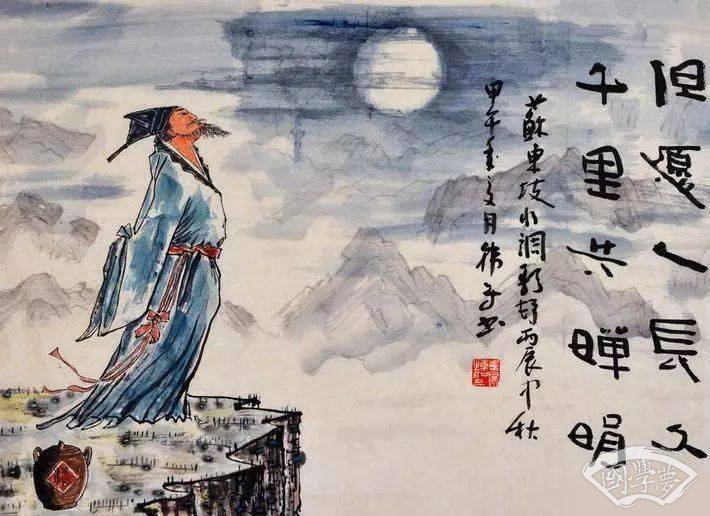 但愿人長久
千里共嬋娟
蘇東坡水調歌頭丙辰中秋
甲午年文月
國學夢